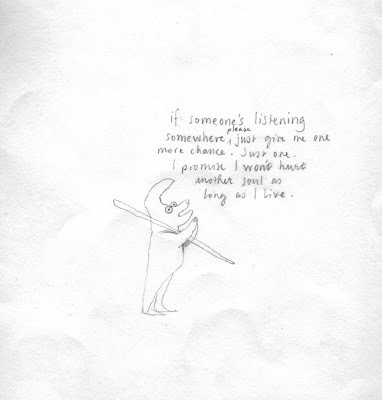 if someone's listening
somewhere, please just give me one
more chance. Just one.
I promise I won't hurt
another soul as
long as I live.